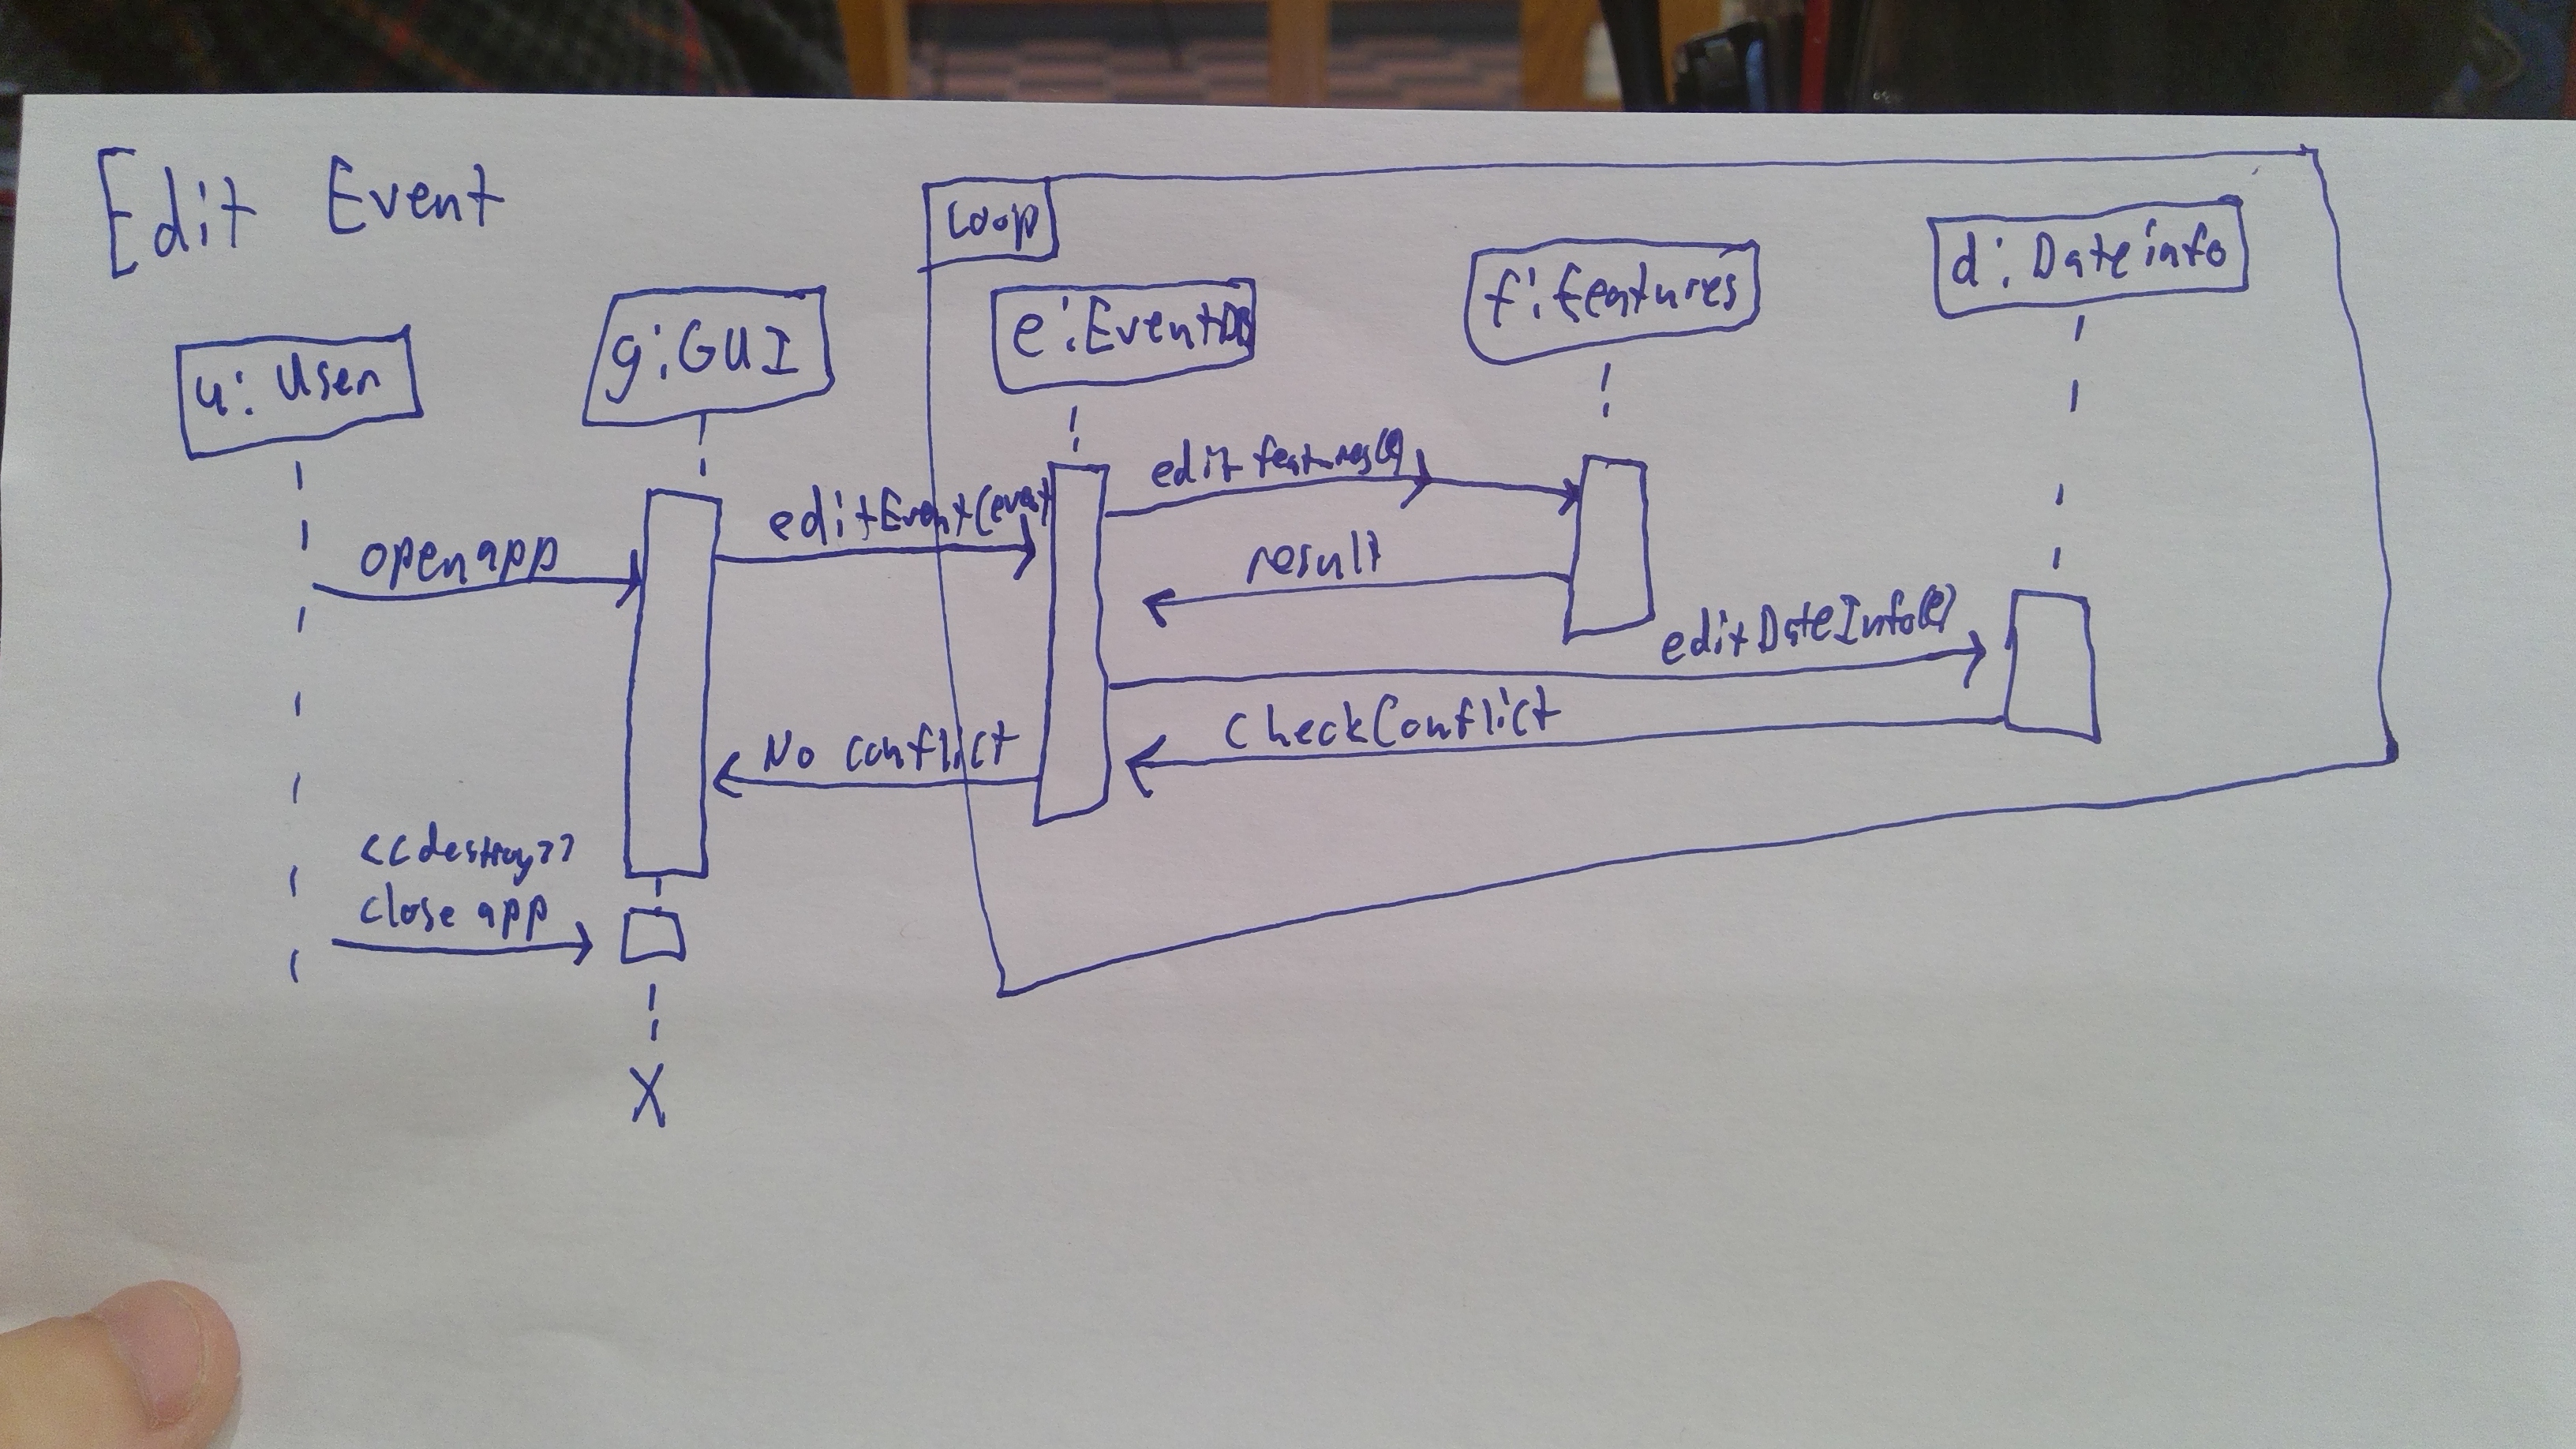 Edit Event
Loop
u: User
g: GUI
e: EventDB
f: Features
d: Dateinfo
open app
editEvent(event
edit features(e)
result
editDateInfo(e)
checkConflict
No conflict
<<destroy>>
close app
X